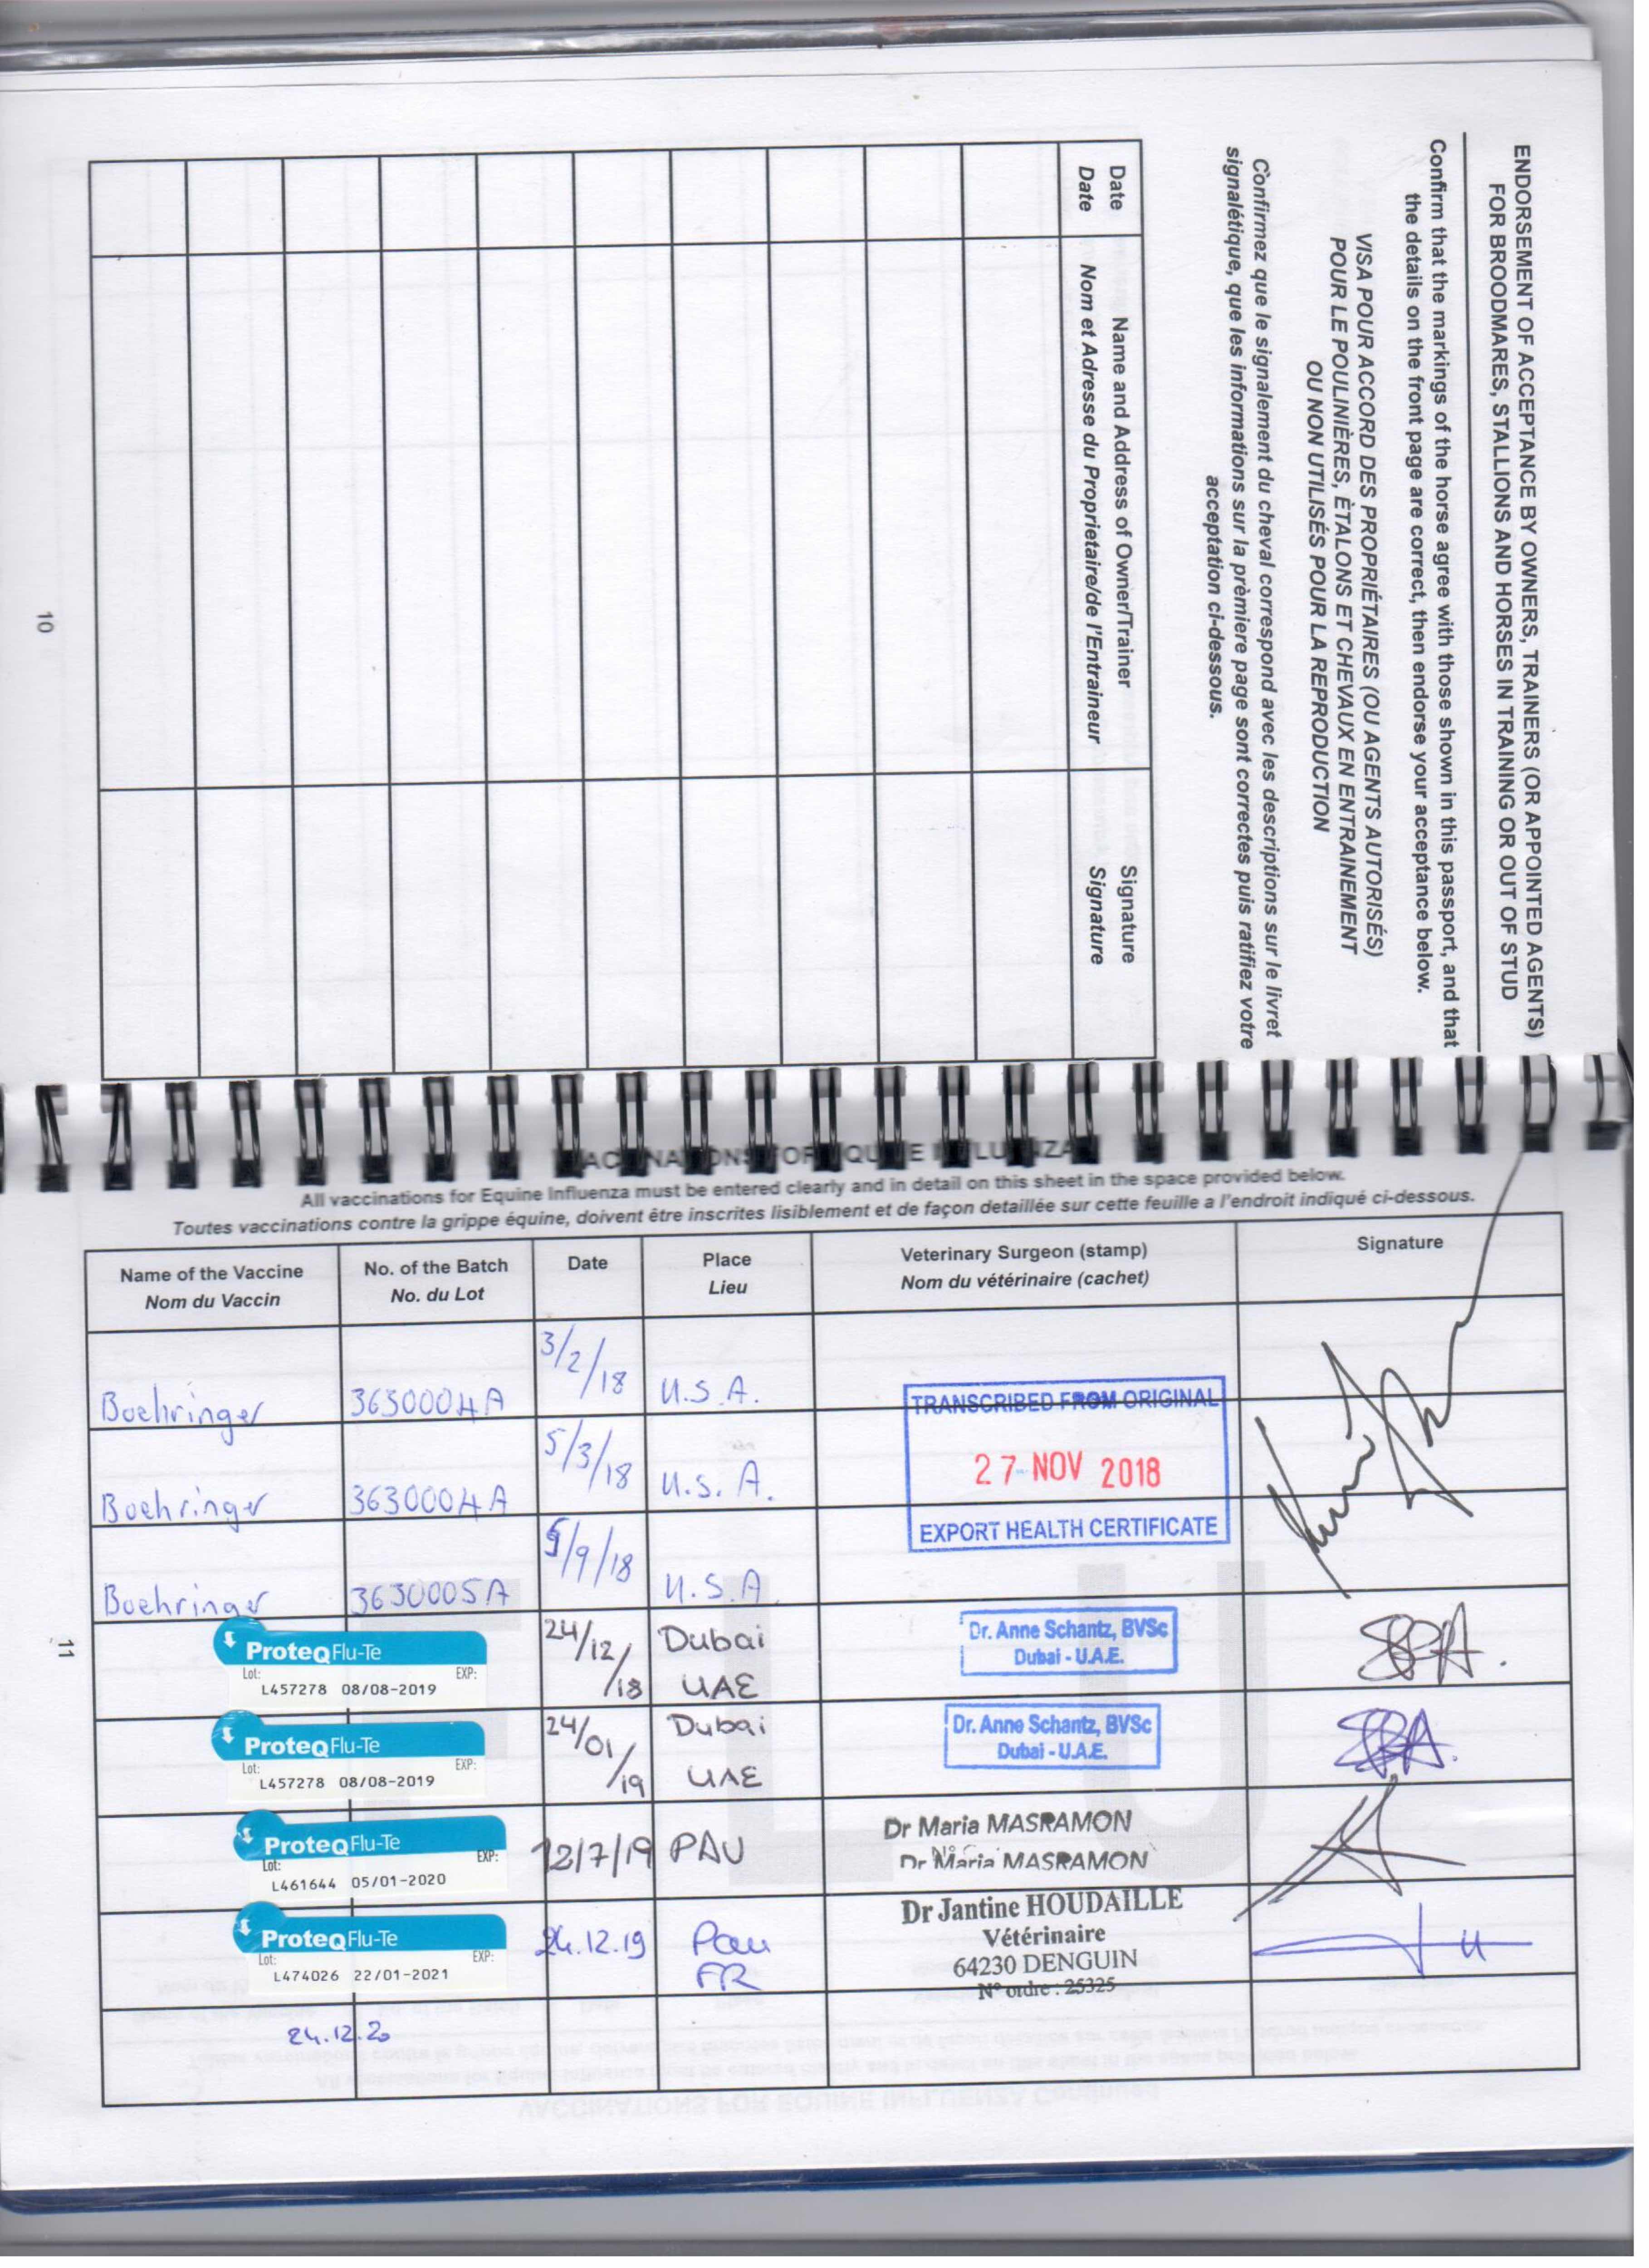 ENDORSEMENT OF ACCEPTANCE BY OWNERS, TRAINERS (OR APPOINTED AGENTS)
FOR BROODMARES, STALLIONS AND HORSES IN TRAINING OR OUT OF STUD
Confirm that the markings of the horse agree with those shown in this passport, and that
the details on the front page are correct, then endorse your acceptance below.
VISA POUR ACCORD DES PROPRIÉTAIRES (OU AGENTS AUTORISÉS)
POUR LE POULINIÈRES, ÈTALONS ET CHEVAUX EN ENTRAINEMENT
OU NON UTILISÉS POUR LA REPRODUCTION
Confirmez que le signalement du cheval correspond avec les descriptions sur le livret
signalétique, que les informations sur la prèmiere page sont correctes puis ratifiez votre
acceptation ci-dessous.
Date Name and Address of Owner/Trainer Signature
Date Nom et Adresse du Proprietaire/de l'Entraineur Signature
10
VACCINATIONS FOR EQUINE INFLUENZA
All vaccinations for Equine Influenza must be entered clearly and in detail on this sheet in the space provided below.
Toutes vaccinations contre la grippe équine, doivent être inscrites lisiblement et de façon detaillée sur cette feuille a l'endroit indiqué ci-dessous.
Name of the Vaccine No. of the Batch Date Place Veterinary Surgeon (stamp) Signature
Nom du Vaccin No. du Lot Lieu Nom du vétérinaire (cachet)
Boehringer 3630004A 3/2/18 U.S.A.
TRANSCRIBED FROM ORIGINAL
Boehringer 3630004A 5/3/18 U.S.A.
27 NOV 2018
EXPORT HEALTH CERTIFICATE
Boehringer 3630005A 5/9/18 U.S.A.
ProteqFlu-Te 24/12/18 Dubai Dr. Anne Schantz, BVSc
Lot: EXP: UAE Dubai - U.A.E.
L457278 08/08-2019
ProteqFlu-Te 24/01/19 Dubai Dr. Anne Schantz, BVSc
Lot: EXP: UAE Dubai - U.A.E.
L457278 08/08-2019
ProteqFlu-Te 12/7/19 PAU Dr Maria MASRAMON
Lot: EXP: Dr Maria MASRAMON
L461644 05/01-2020
ProteqFlu-Te 24.12.19 Pau Dr Jantine HOUDAILLE
Lot: EXP: FR Vétérinaire
L474026 22/01-2021 64230 DENGUIN
N° ordre : 25325
24.12.20
11